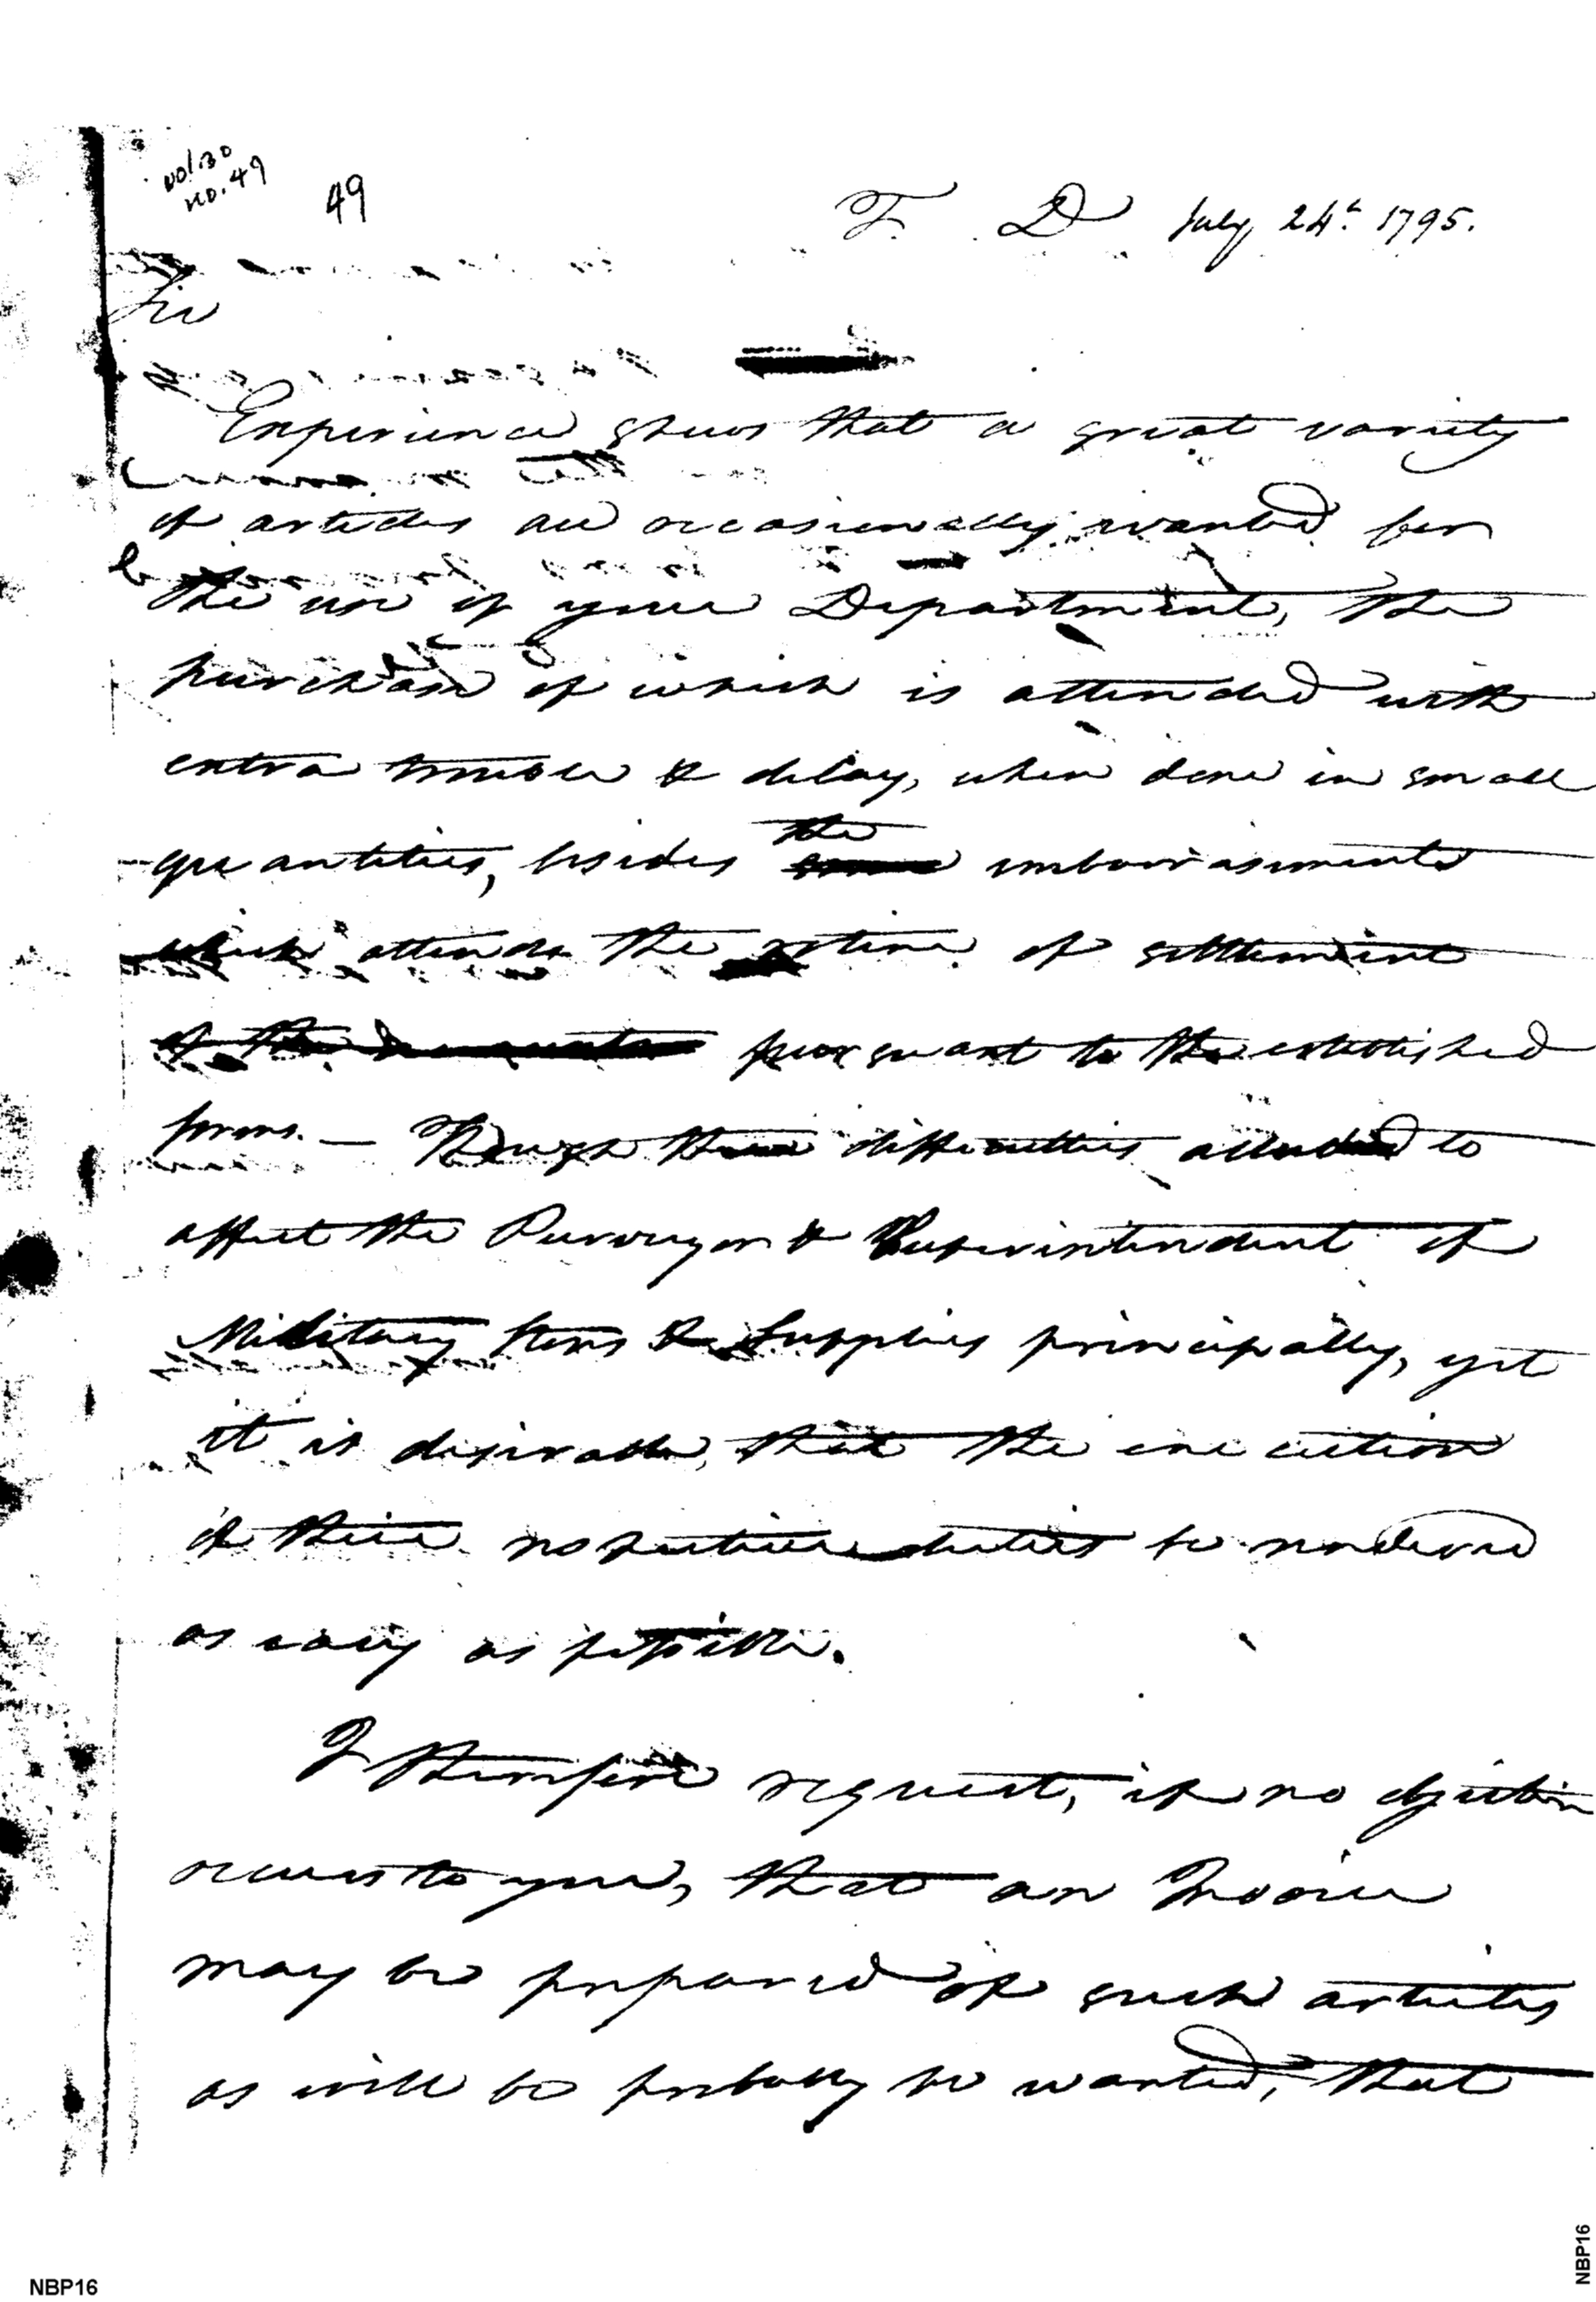 vol.30
no.49
49
T. D. July 24th. 1795.
Sir
Experience shews that a great variety
of articles are occasionally wanted for
the use of your Department, the
purchase of which is attended with
extra trouble & delay, when done in small
the
quantities, besides embarrasments
which attends the rotine of settlement
of the pursuant to the established
forms. — Though the difficulties alluded to
affect the Purveyor & Superintendent of
Military Stores & Supplies principally, yet
it is desirable, that the execution
of their respective duties be rendered
as easy as possible.
I therefore request, if no objection
occurs to you, that an Invoice
may be prepared of such articles
as will be probably be wanted, that
NBP16
NBP16